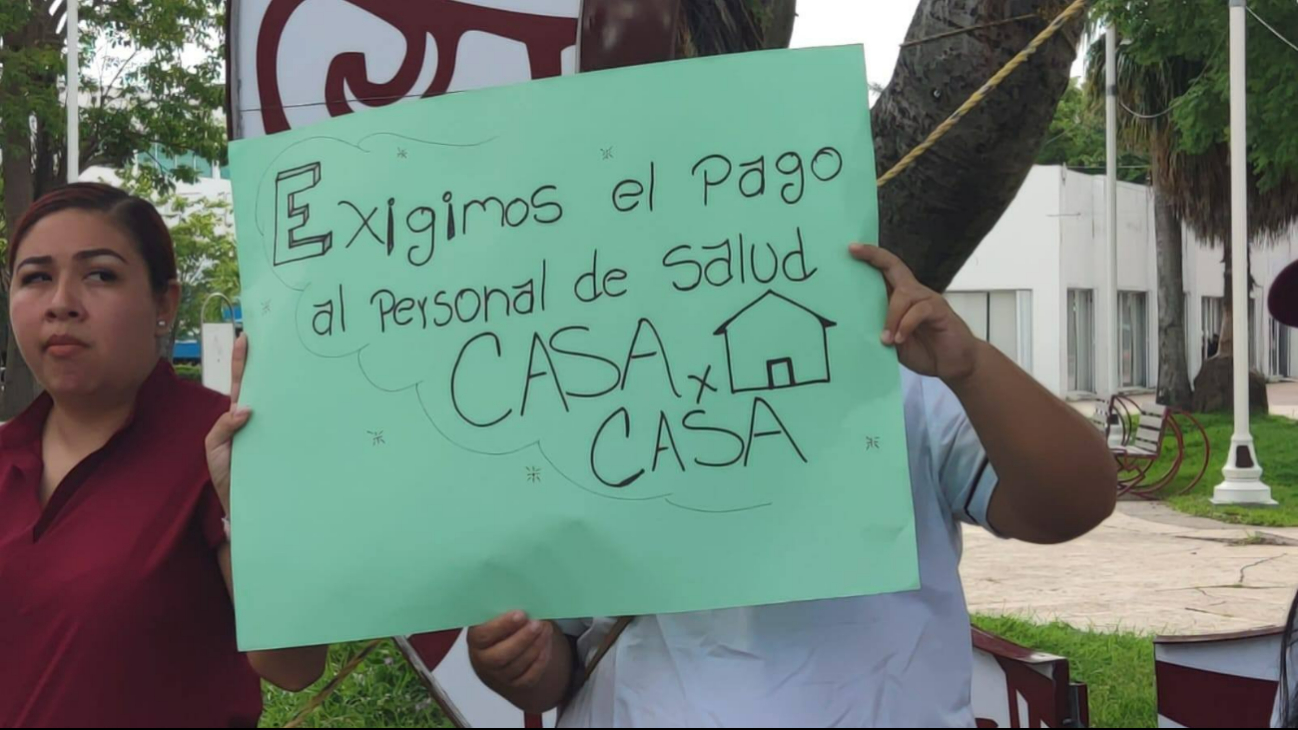 Exigimos el Pago
al Personal de Salud
CASA x
CASA